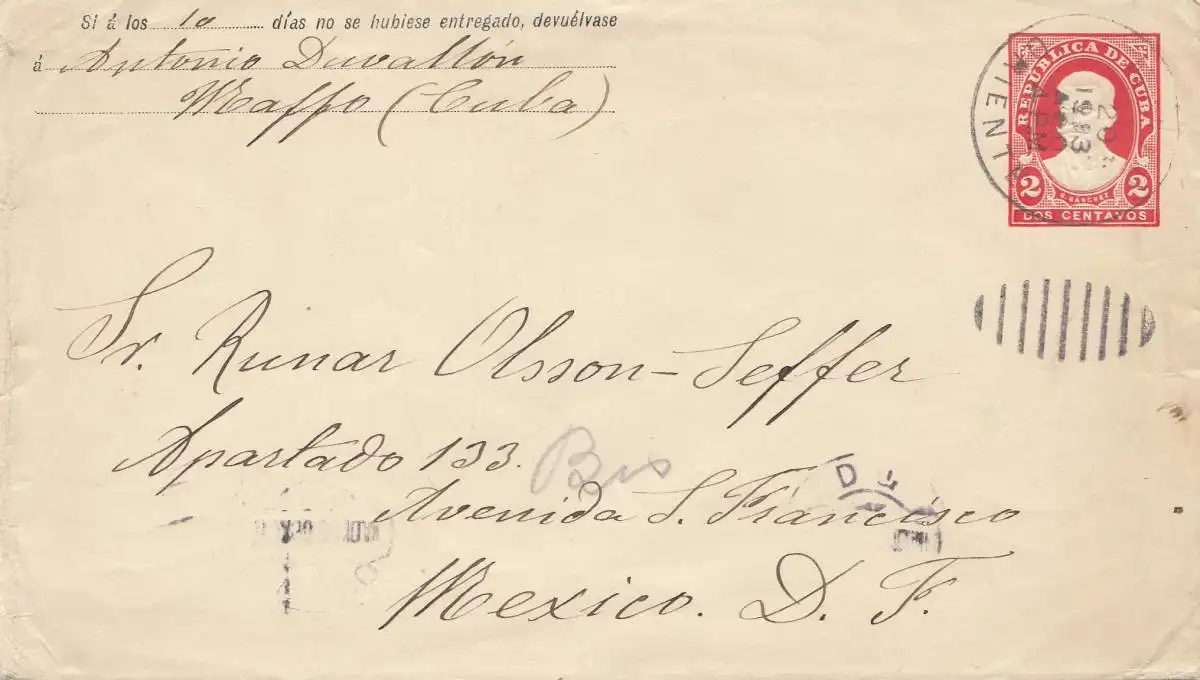 Si á los 10 días no se hubiese entregado, devuélvase
á Antonio Duvallón
Maffo (Cuba)
REPÚBLICA DE CUBA
2 2
E. SANCHEZ
DOS CENTAVOS
20
1913
ORIENTE
Sr. Runar Olsson-Seffer
Apartado 133. Bis
Avenida S. Francisco
Mexico. D. F.